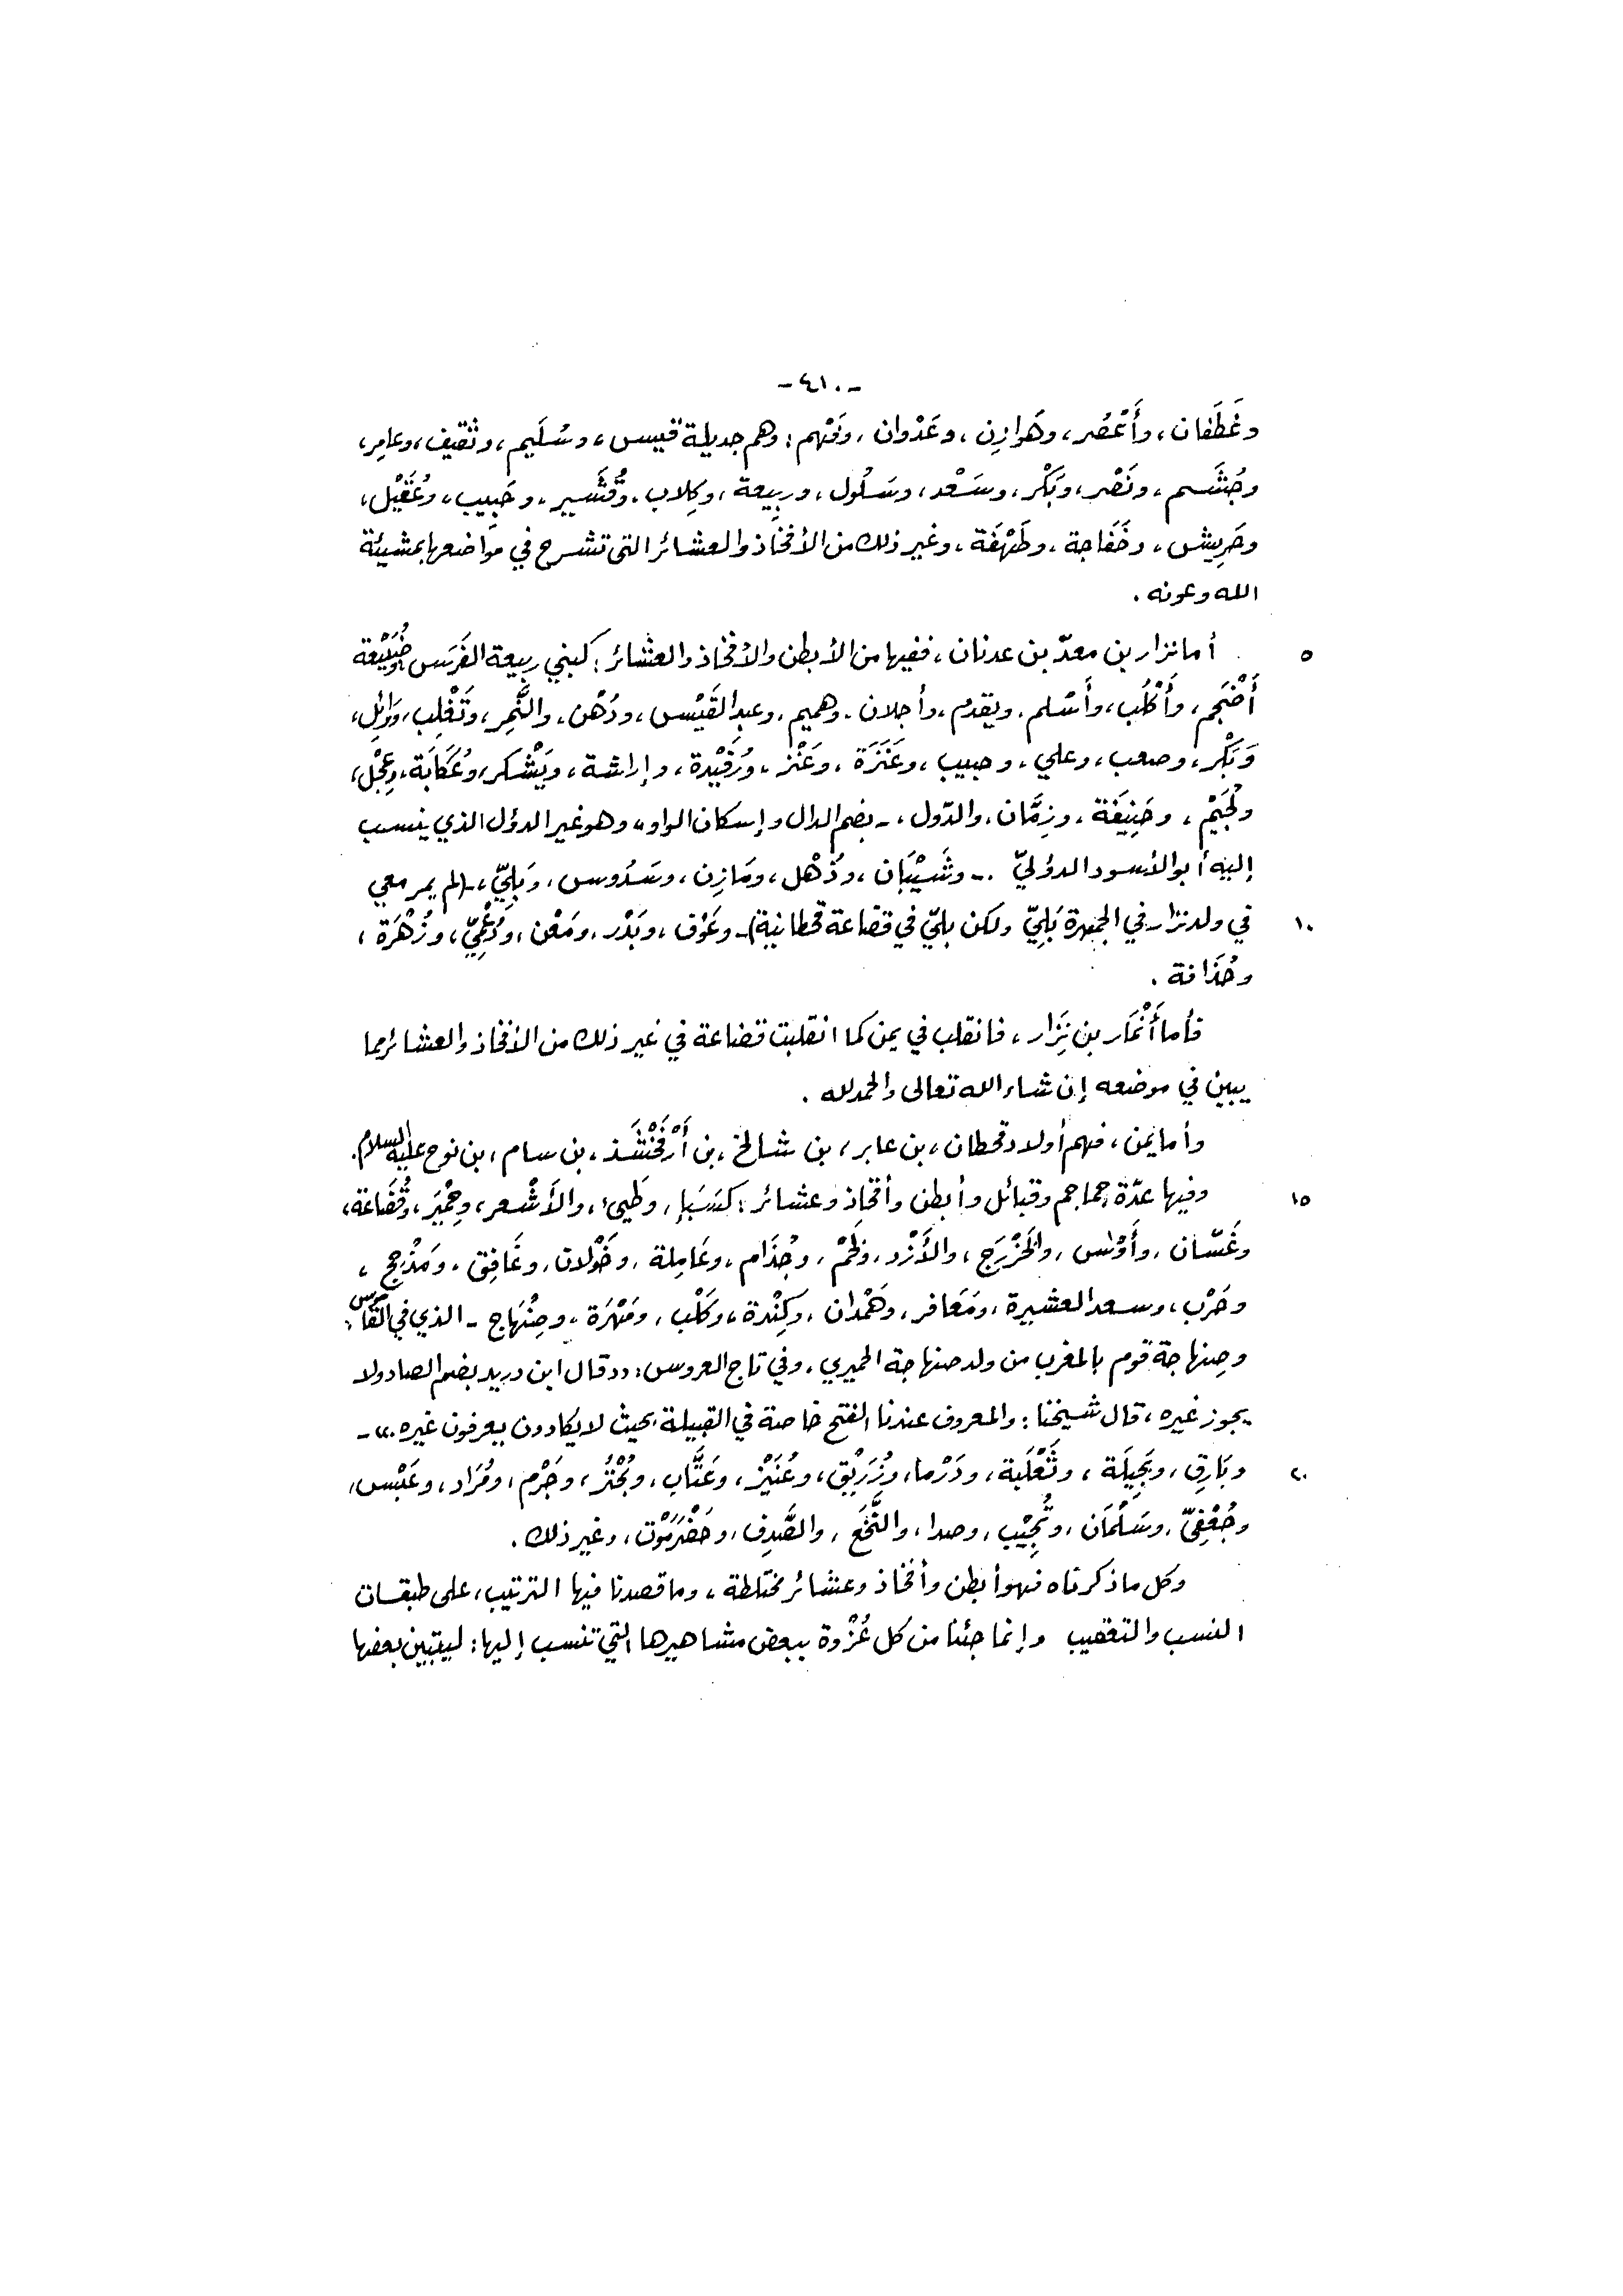 -٤١٠-
وغَطَفان، وأَعْصُر، وهَوازِن، وعَدْوان، وفَهْم: وهم جديلة قيس، وسُلَيم، وثقيف، وعامِر،
وجُشَم، ونَصْر، وبَكْر، وسَعْد، وسَلُول، وربيعة، وكِلاب، وقُشَير، وحَبِيب، وعُقَيْل،
وحَرِيش، وخَفَاجة، وطَهْفَة، وغير ذلك من الأفخاذ والعشائر التي تشرح في مواضعها بمشيئة
الله وعونه.
٥ أما نزار بن معدّ بن عدنان، ففيها من الأبطن والأفخاذ والعشائر: كبني ربيعة الفَرَس وضُبَيْعة
أَضْجَم، وأَكْلُب، وأَسْلم. ويقدُم، وأجلان. وهميم، وعبد القَيْس، ودُهْن، والنَّمِر، وتَغْلِب، ووَائِل،
وَبَكْر، وصعب، وعلي، وحبيب، وعَنَزَة، وعَنْز، ورُفَيْدة، وإراشة، ويَشْكر، وعُكَابَة، وعِجْل،
ولُجَيْم، وحَنِيفَة، وزِمَّان، والدّول، -بضم الدال وإسكان الواو، وهو غير الدؤل الذي ينسب
إليه أبو الأسود الدؤليّ .- وشَيْبَان، وذُهْل، ومَازِن، وسَدُوس، وَبَلِيّ، -(لم يمر معي
١٠ في ولد نزار في الجمهرة بَلِيّ ولكن بليّ في قضاعة قحطانية)- وعَوْف، وبَدْر، ومَعْن، ودُعْمِيّ، وزُهْرَة،
وحُذَافة.
فأما أَنْمَار بن نِزَار، فانقلب في يمن كما انقلبت قضاعة في غير ذلك من الأفخاذ والعشائر مما
يبين في موضعه إن شاء الله تعالى والحمد لله.
وأما يمن، فهم أولاد قحطان، بن عابر، بن شالخ، بن أَرْفَخْشَذ، بن سام، بن نوح عليه السلام.
١٥ وفيها عدّة جماجم وقبائل وأبطن وأفخاذ وعشائر: كَسَبَإ، وطَيئ، والأَشْعر، وحِمْيَر، وقُضَاعة،
وغَسّان، وأَوْس، والخَزْرَج، والأَزْد، ولَخْم، وجُذَام، وعَامِلة، وخَوْلان، وغَافِق، ومَذْحِج،
وحَرْب، وسعد العشيرة، ومَعَافر، وهَمْدان، وكِنْدة، وكَلْب، ومَهْرَة، وصِنْهَاج - الذي في القاموس:
وصِنهاجة قوم بالمغرب من ولد صنهاجة الحميري، وفي تاج العروس: «قال ابن دريد بضم الصاد ولا
يجوز غيره، قال شيخنا: والمعروف عندنا الفتح خاصة في القبيلة بحيث لا يكادون يعرفون غيره.» -
٢٠ وبَارِق، وبَجِيلَة، وثَعْلَبة، ودَرْما، وزُرَيْق، وعُنَيْز، وعَتَّاب، وبُحْتُر، وجَرْم، ومُرَاد، وعَبْس،
وجُعْفِيّ، وسَلْمَان، وتُجِيْب، وصدا، والنَّخَع، والصَّدِف، وحَضْرَمَوْت، وغير ذلك.
وكل ما ذكرناه فهو أبطن وأفخاذ وعشائر مختلطة، وما قصدنا فيها الترتيب، على طبقات
النسب والتعقيب وإنما جئنا من كل عُزْوة ببعض مشاهيرها التي تنسب إليها: ليتبين بعضها